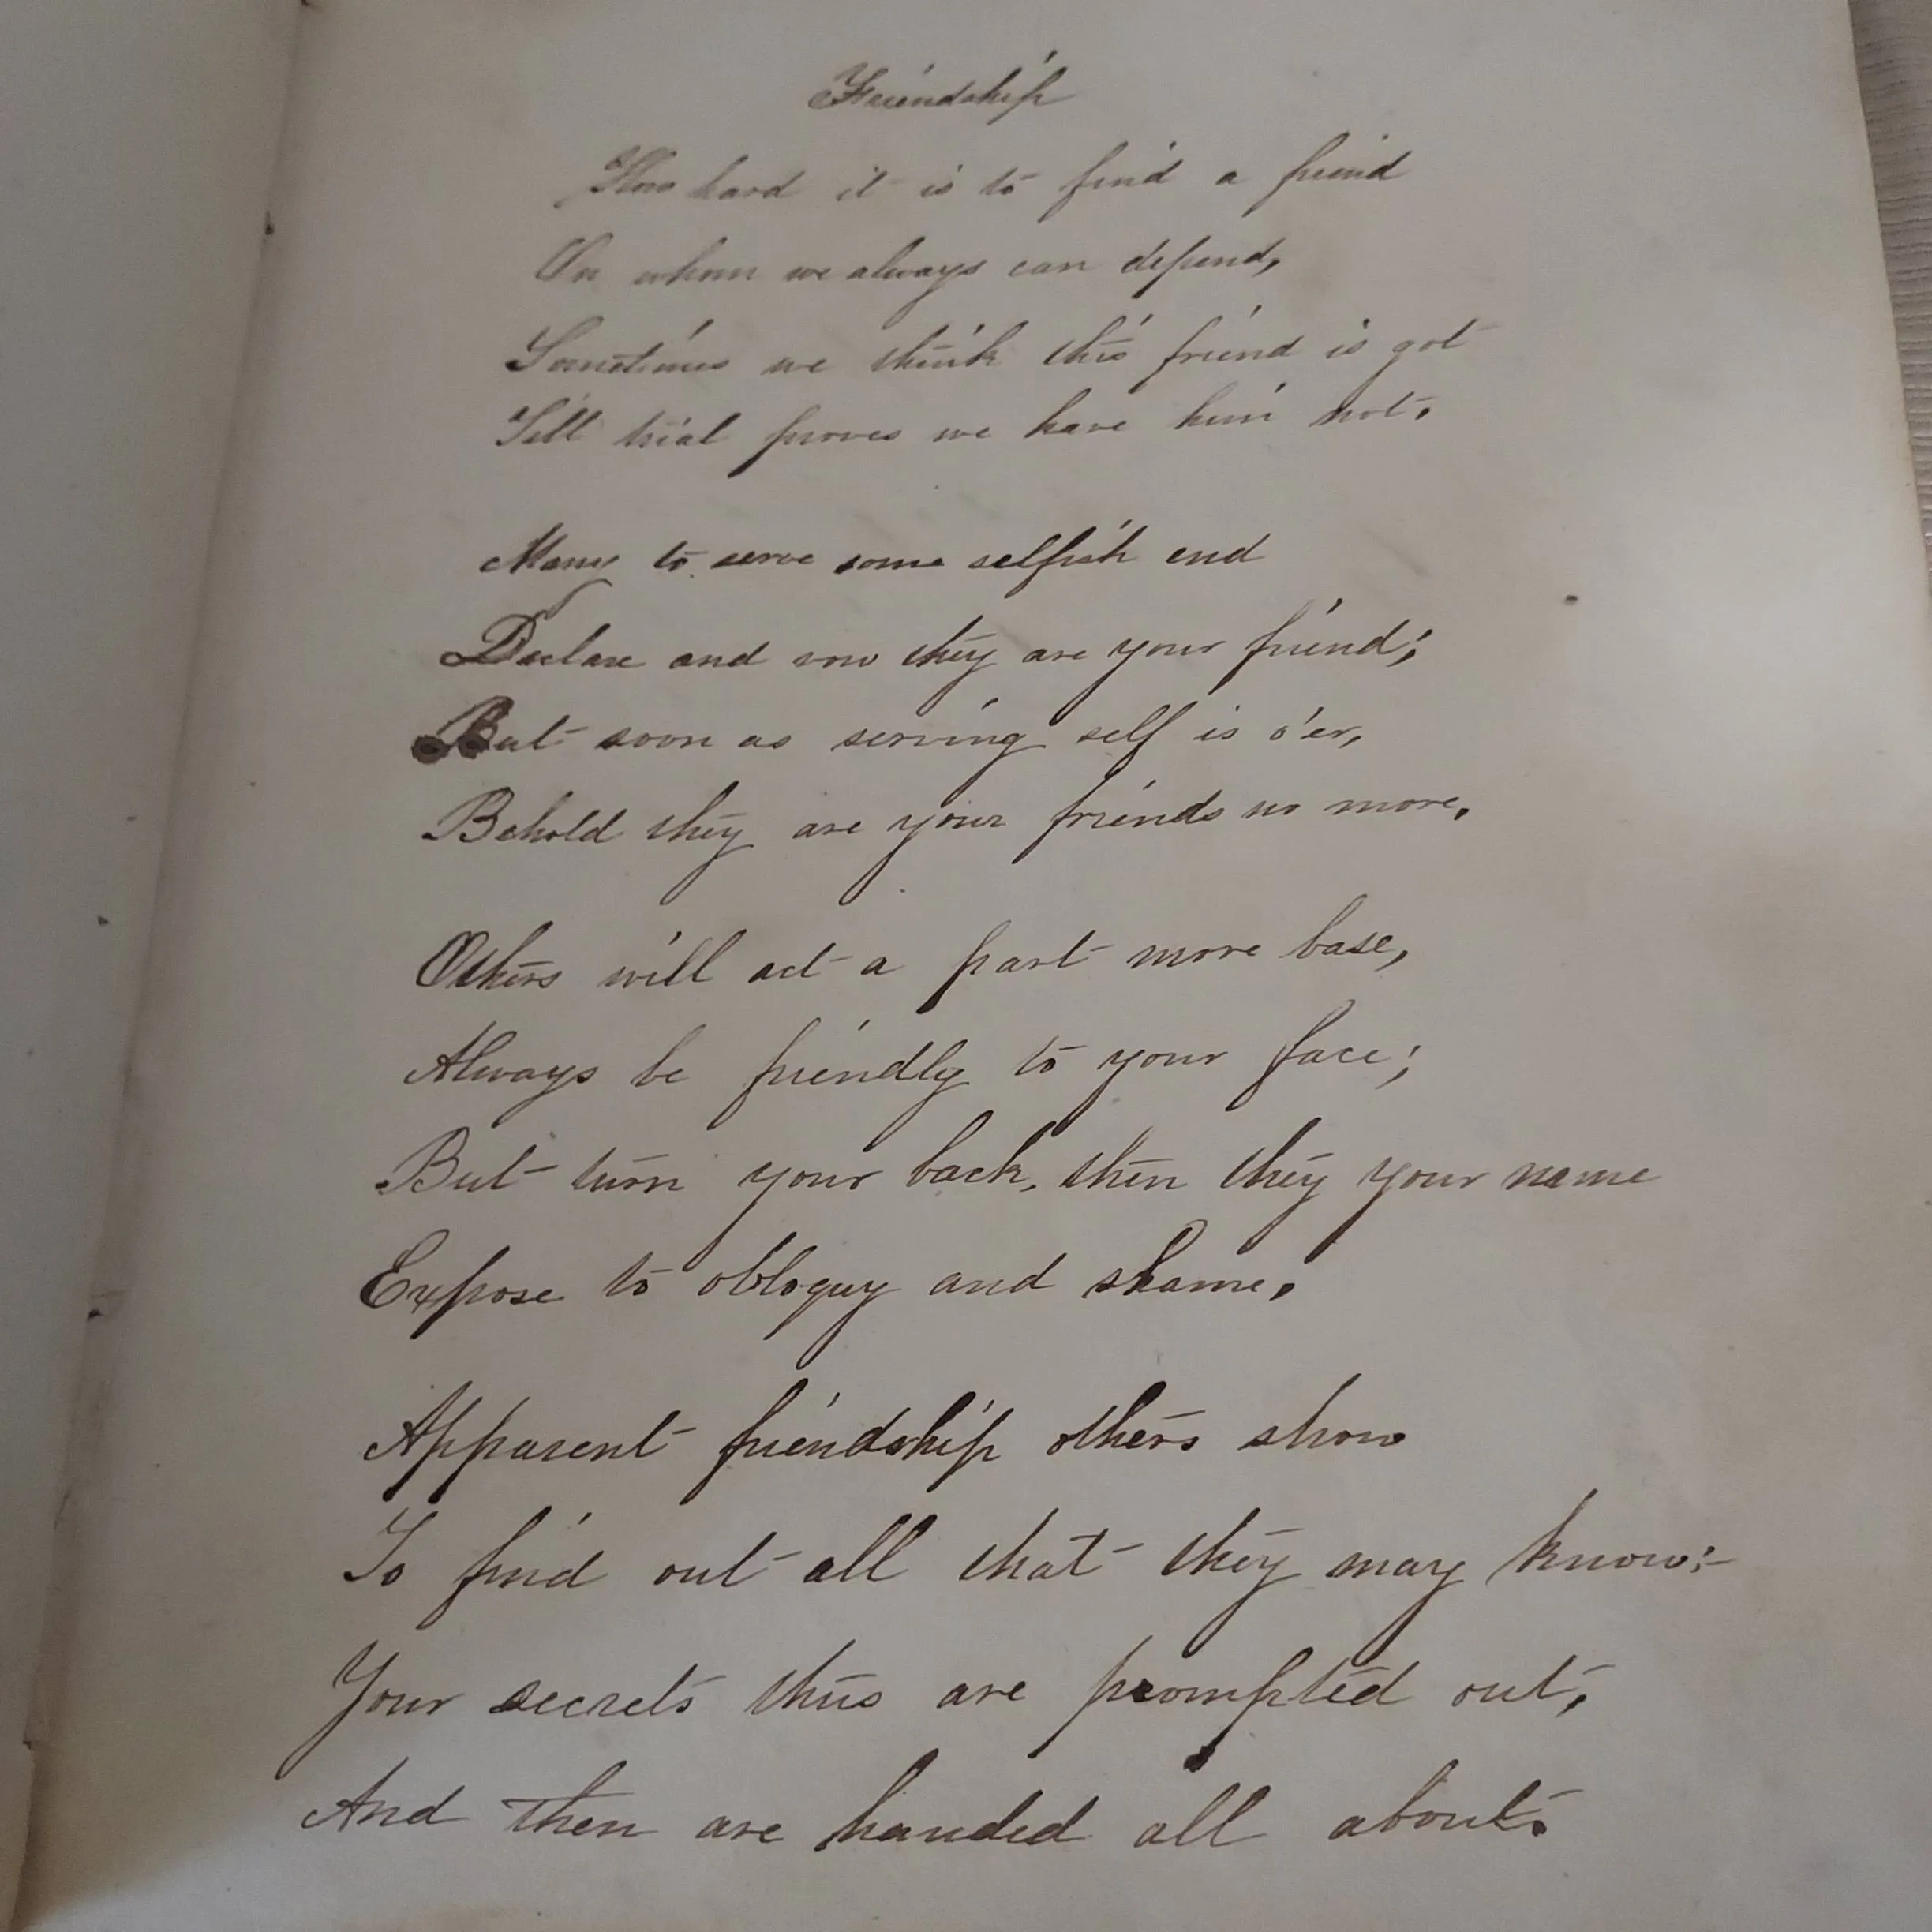 Friendship
How hard it is to find a friend
On whom we always can depend,
Sometimes we think this friend is got
Till trial proves we have him not.
Many to serve some selfish end
Declare and vow they are your friend;
But soon as serving self is o'er,
Behold they are your friends no more.
Others will act a part more base,
Always be friendly to your face;
But turn your back, then they your name
Expose to obloquy and shame.
Apparent friendship others show
To find out all that they may know:-
Your secrets thus are prompted out,
And then are handed all about.